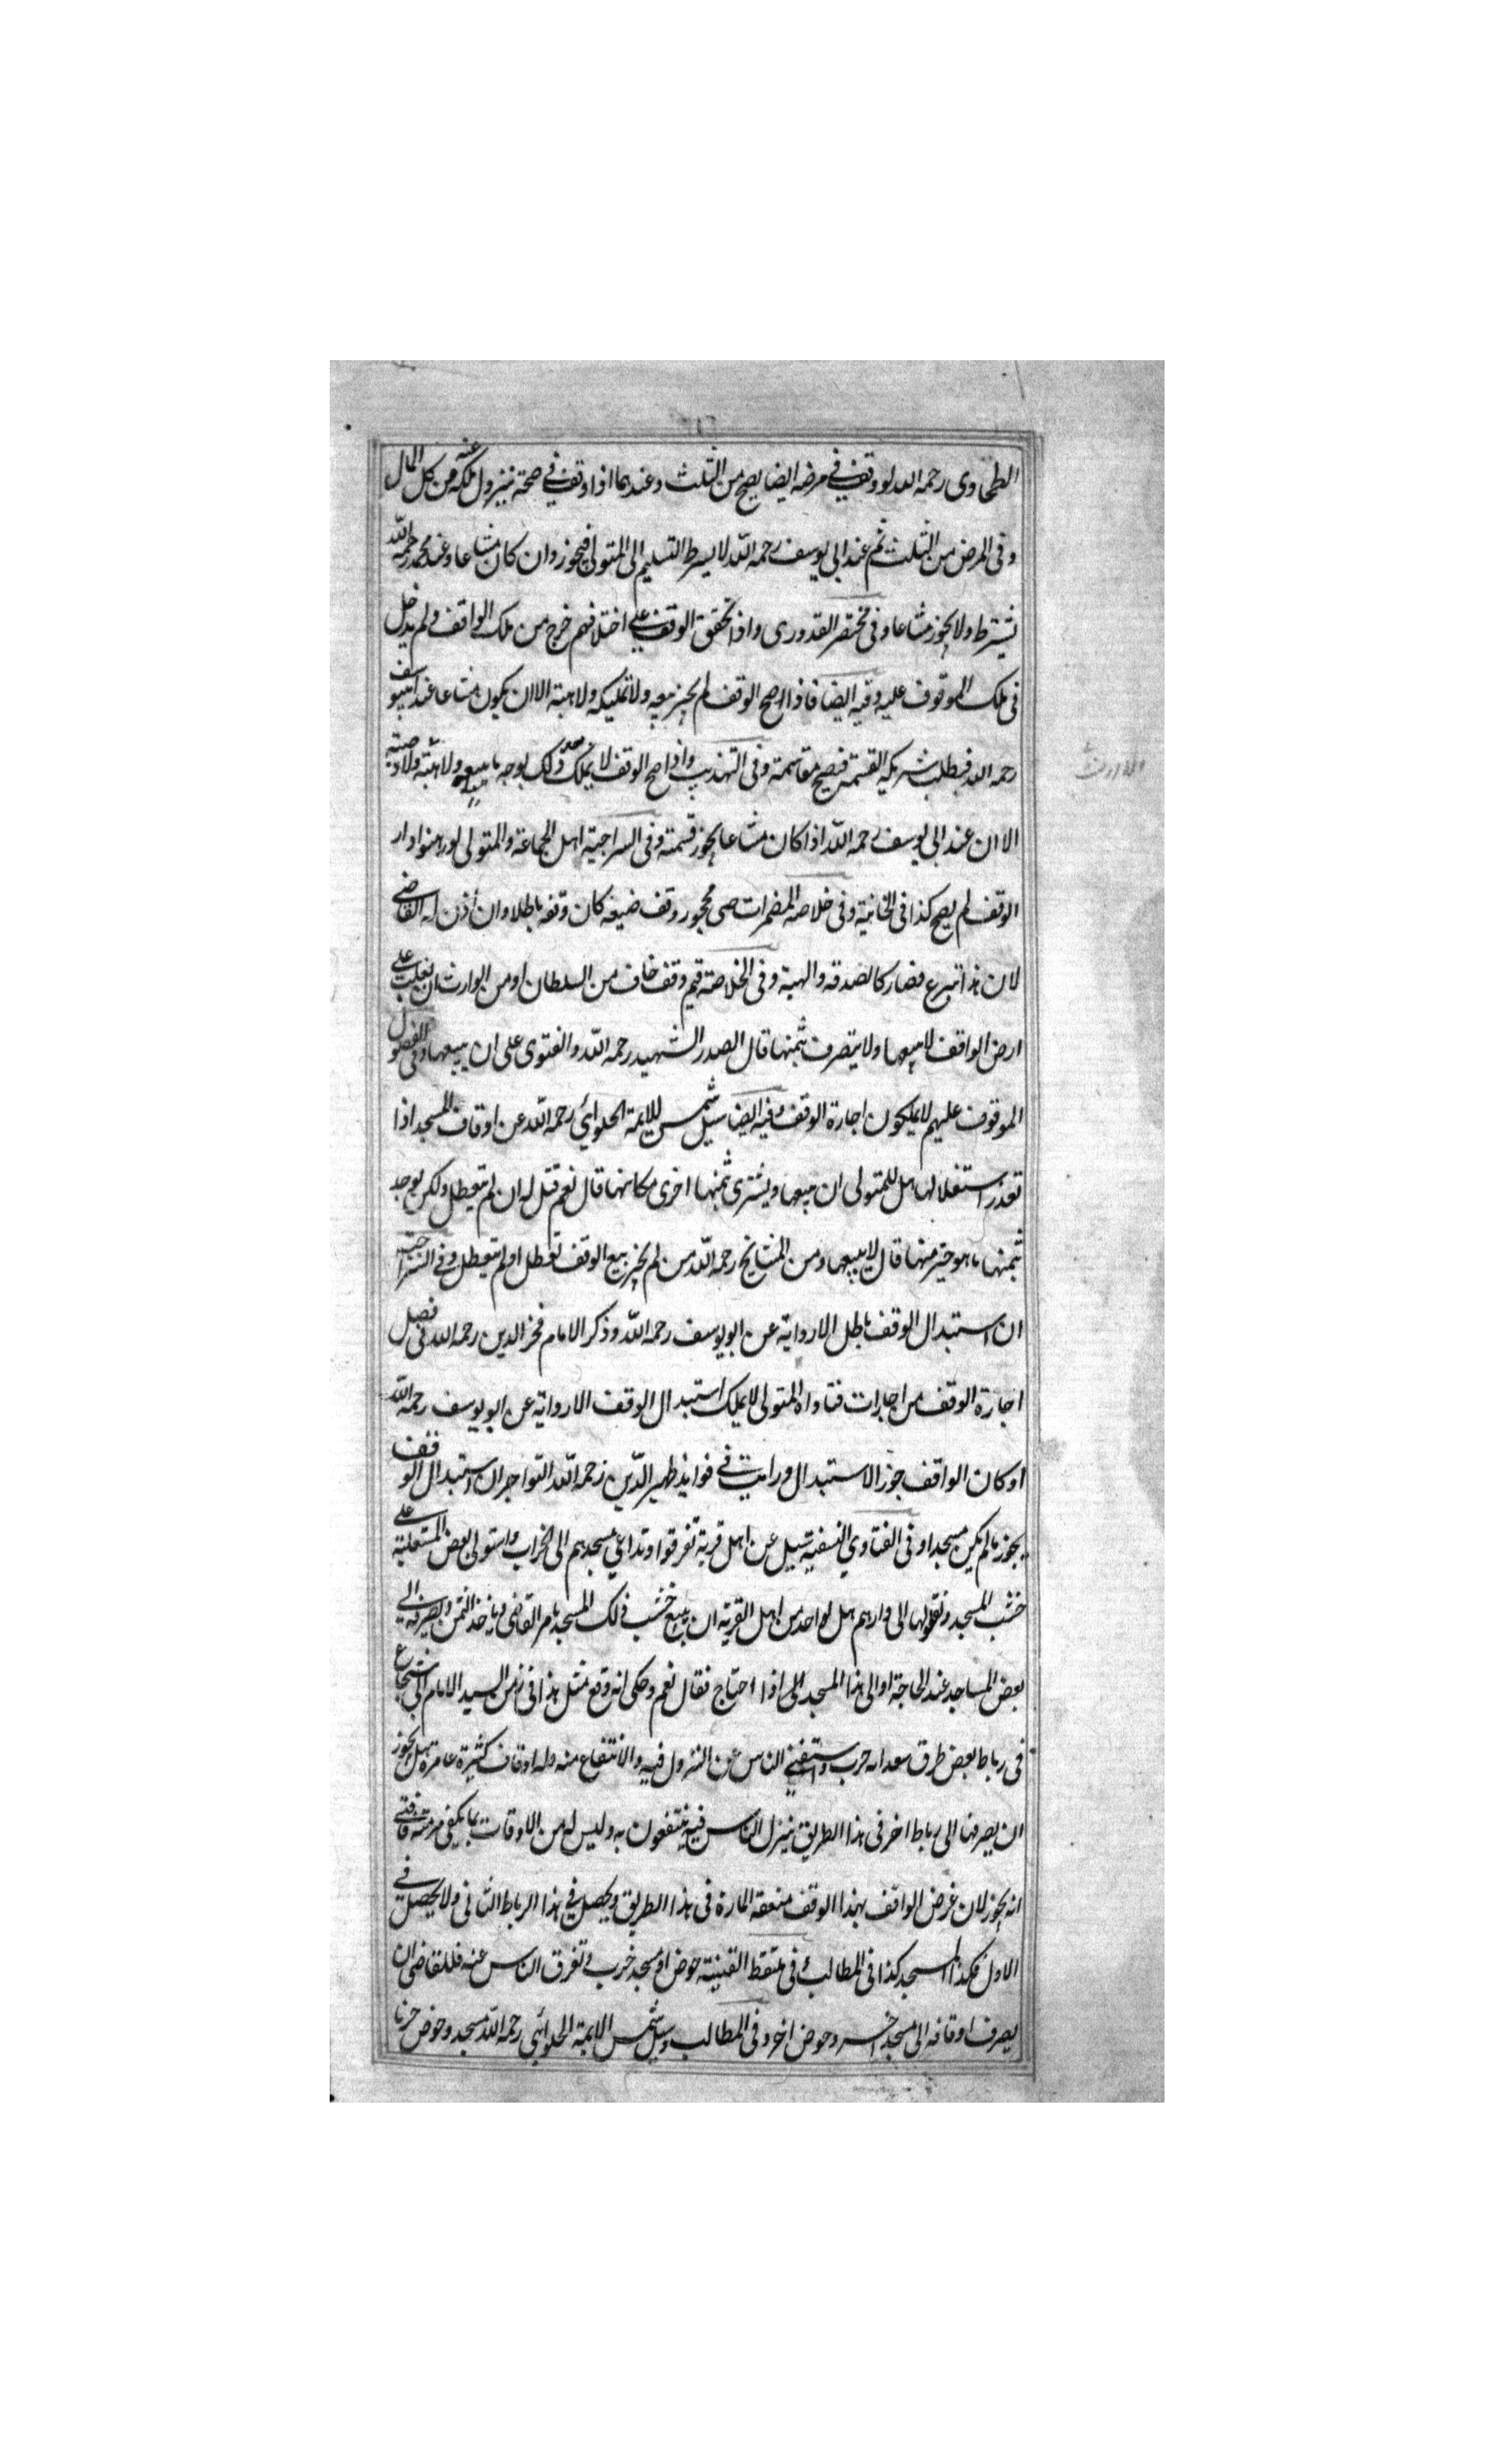 الطحاوى رحمه الله لو وقف في مرضه ايضا يصح من الثلث وعندهما اذا وقف في صحته يزول ملكه عنه من كل المال
وفى المرض من الثلث ثم عند ابى يوسف رحمه الله لا يشرط التسليم الى المتولى فيجوز وان كان مشاعا وعند محمد رحمه الله
يشترط ولا يجوز مشاعا وفى مختصر القدورى واذا تحقق الوقف على اختلافهم خرج من ملك الواقف ولم يدخل
فى ملك الموقوف عليه وفيه ايضا فاذا صح الوقف لم يجز بيعه ولا تمليكه ولا هبته الا ان يكون مشاعا عند ابيوسف
رحمه الله فيطلب شريكه القسمة فيصح مقاسمته وفى التهذيب واذا صح الوقف لا يملك ذلك بوجه ما ببيعه ولا هبته ولا وصيته
الا ان عند ابى يوسف رحمه الله اذا كان مشاعا يجوز قسمته وفى السراجية اهل الجماعة والمتولى لو رهنوا دار
الوقف لم يصح كذا فى الخانية وفى خلاصه المضمرات صبى محجور وقف ضيعه كان وقفه باطلا وان أذن له القاضى
لان هذا تبرع فصار كالصدقه والهبة وفى الخلاصة قيم وقف خاف من السلطان او من الوارث ان يغلب على
ارض الواقف لا يبيعها ولا يتصرف بثمنها قال الصدر الشهيد رحمه الله والفتوى على ان يبيعها وفى الفصول
الموقوف عليهم لا يملكون اجارة الوقف وفيه ايضا سيل شمس للايمة الحلوائي رحمه الله عن اوقاف المسجد اذا
تعذر استغلالها هل للمتولى ان يبيعها ويشترى بثمنها اخرى مكانها قال نعم قيل له ان لم يتعطل ولكن يوجد
بثمنها ما هو خير منها قال لا يبيعها ومن المشايخ رحمه الله من لم يجز بيع الوقف تعطل او لم يتعطل وفى السراجية
ان استبدال الوقف باطل الا رواية عن ابو يوسف رحمه الله وذكر الامام فخر الدين رحمه الله فى فصل
اجارة الوقف من اجارات فتاواه المتولى لا يملك استبدال الوقف الا رواية عن ابو يوسف رحمه الله
او كان الواقف جوز الاستبدال ورايت في فوايد ظهير الدين رحمه الله التواجر ان استبدال الوقف
يجوز ما لم يكن مسجدا وفى الفتاوي النسفية سيل عن اهل قرية تفرقوا وتداعي مسجدهم الى الخراب واستولى بعض المتغلبة على
خشب المسجد ونقلوها الى دارهم هل لواحد من اهل القرية ان يبيع خشب ذلك المسجد بامر القاضى وياخذ الثمن ويصرفه الى
بعض المساجد عند الحاجة او الى هذا المسجد الى اذا احتاج فقال نعم وحكى انه وقع مثل هذا فى زمن السيد الامام ابى شجاع
فى رباط بعض طرق سعدانه خرب واستغنى الناس عن النزول فيه والانتفاع منه وله اوقاف كثيرة عامرة هل يجوز
ان يصرفها الى رباط اخر فى هذا الطريق ينزل الناس فيه ينتفعون به وليس له من الاوقات بما يكفى مرمته فافتى
انه يجوز لان غرض الواقف بهذا الوقف منفعة المارة فى هذا الطريق ويحصل في هذا الرباط الثانى ولا يحصل فى
الاول فكذا المسجد كذا فى المطالب وفى ملتقط القنية حوض او مسجد خرب وتفرق الناس عنه فللقاضى ان
يصرف اوقافه الى مسجد اخر وحوض اخر وفى المطالب وسيل شمس الايمة الحلوائي رحمه الله مسجد وحوض خربا